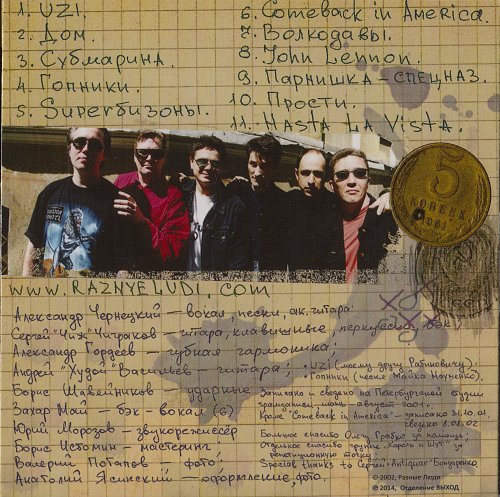 1. UZI.
2. Дом.
3. Субмарина.
4. Гопники.
5. Superбизоны.
6. Comeback in America.
7. Волкодавы.
8. John Lennon.
9. Парнишка – спецназ.
10. Прости.
11. Hasta La Vista.
5
КОПЕЕК
WWW.RAZNYELUDI.COM
Александр Чернецкий – вокал, песни, ак. гитара
Сергей "Чиж" Чиграков – гитара, клавишные, перкуссия, вок.
Александр Гордеев – губная гармоника;
Андрей "Худой" Васильев – гитара;
Борис Шавейников – ударные.
Захар Май – бэк-вокал (6)
Юрий Морозов – звукорежиссёр
Борис Истомин – мастеринг
Валерий Потапов – фото;
Анатолий Ясинский – оформление, фото.
• UZI (моему другу Рабиновичу).
• Гопники (песня Майка Науменко).
Записано и сведено на Петербургской студии
грамзаписи, июнь-август 2001.
Кроме "Comeback in America" – записано 31.10.01
сведено 8.02.02
Большое спасибо Олегу Грабко за помощь;
Отдельное спасибо группе "Король и Шут" за
репетиционную точку;
Special thanks to Сергей "Antiquar" Бондаренко
© 2002, Разные Люди
© 2014, Отделение ВЫХОД